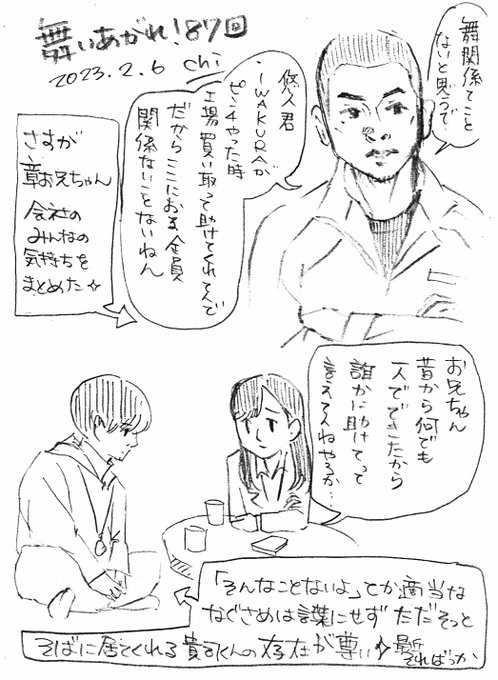 舞いあがれ!87回
2023.2.6 chi
舞関係てこと
ないと思うで
悠人君
IWAKURAが
ピンチやった時
工場買い取って助けてくれてんで
だからここにおる全員
関係ないことないねん
さすが
章お兄ちゃん
会社の
みんなの
気持ちを
まとめた
お兄ちゃん
昔から何でも
一人でできたから
誰かに助けてって
やろか…
「そんなことないよ」とか適当な
なぐさめは言葉にせず ただそっと
そばに居てくれる貴司くんの存在が尊い 最近
そればっか